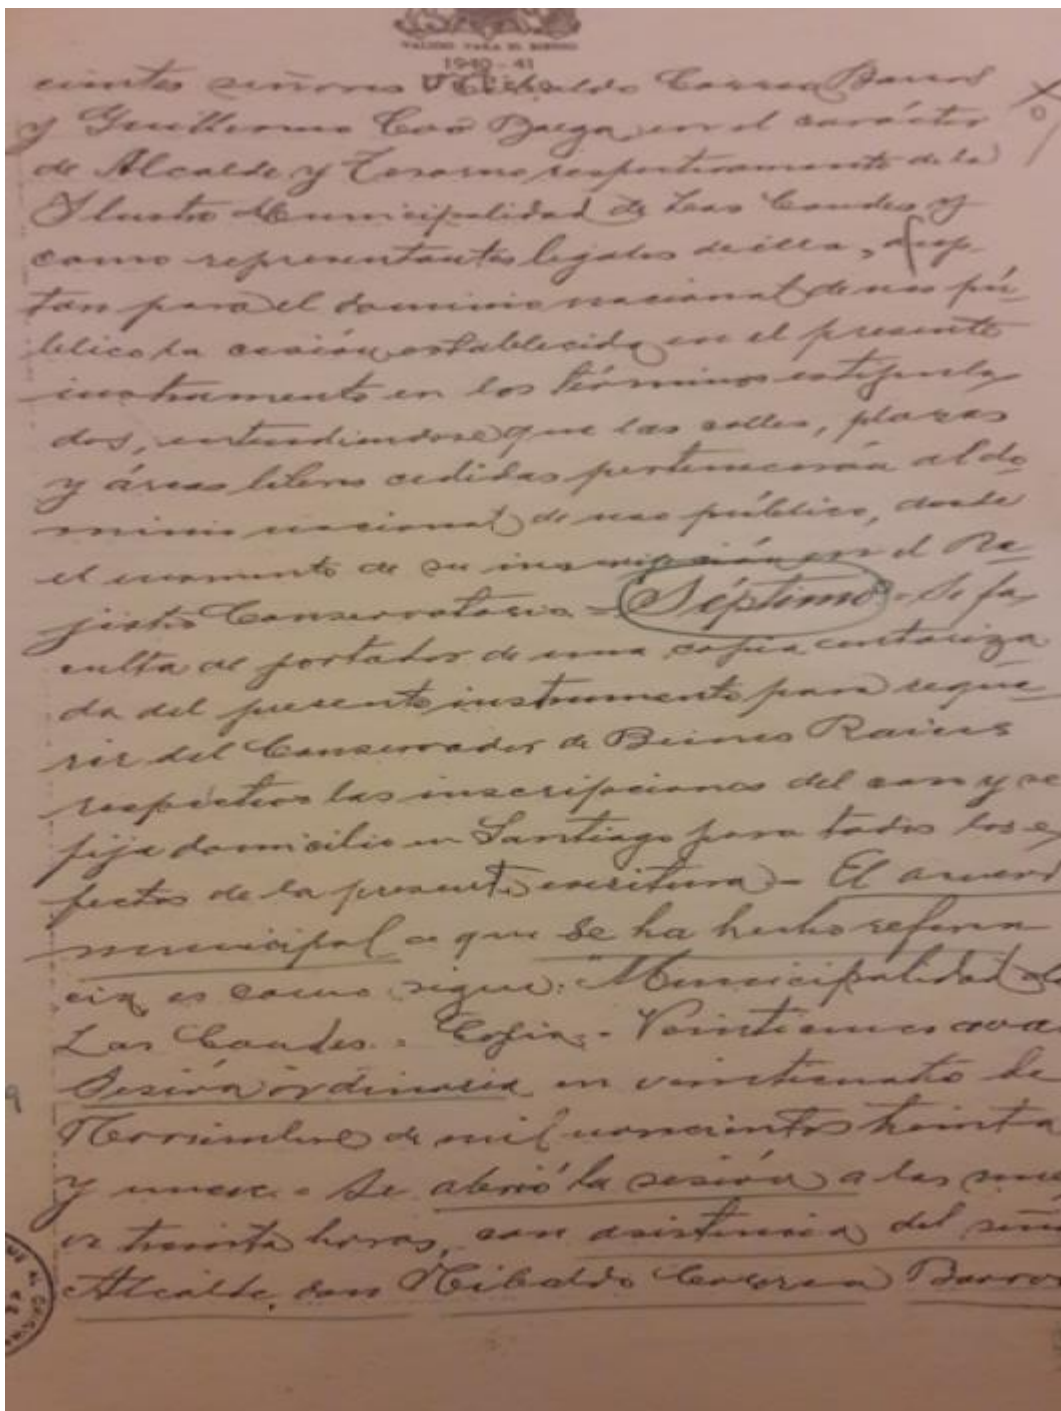 VALIDO PARA EL BIENIO
1940-41
cientes señores Nibaldo Correa Barros
y Guillermo en el carácter
de Alcalde y Tesorero respectivamente de la
Ilustre Municipalidad de Las Condes y
como representantes legales de ella, acep-
tan para el dominio nacional de uso pú-
blico la cesión establecida en el presente
instrumento en los términos estipula-
dos, entendiendose que las calles, plazas
y áreas libres cedidas pertenecerán al do-
minio nacional de uso público, desde
el momento de su inscripción en el Re-
jistro Conservatorio - Séptimo - Se fa-
culta al portador de una copia autoriza
da del presente instrumento para reque-
rir del Conservador de Bienes Raices
respectivo las inscripciones del caso y se
fija domicilio en Santiago para todos los e-
fectos de la presente escritura - El acuerdo
municipal a que se ha hecho referen-
cia es como sigue: Municipalidad de
Las Condes. - Copia. -
Sesión ordinaria en veinticuatro de
Noviembre de mil novecientos treinta
y nueve. - Se abrió la sesión a las nue
ve treinta horas, con asistencia del señor
Alcalde, don Nibaldo Correa Barros